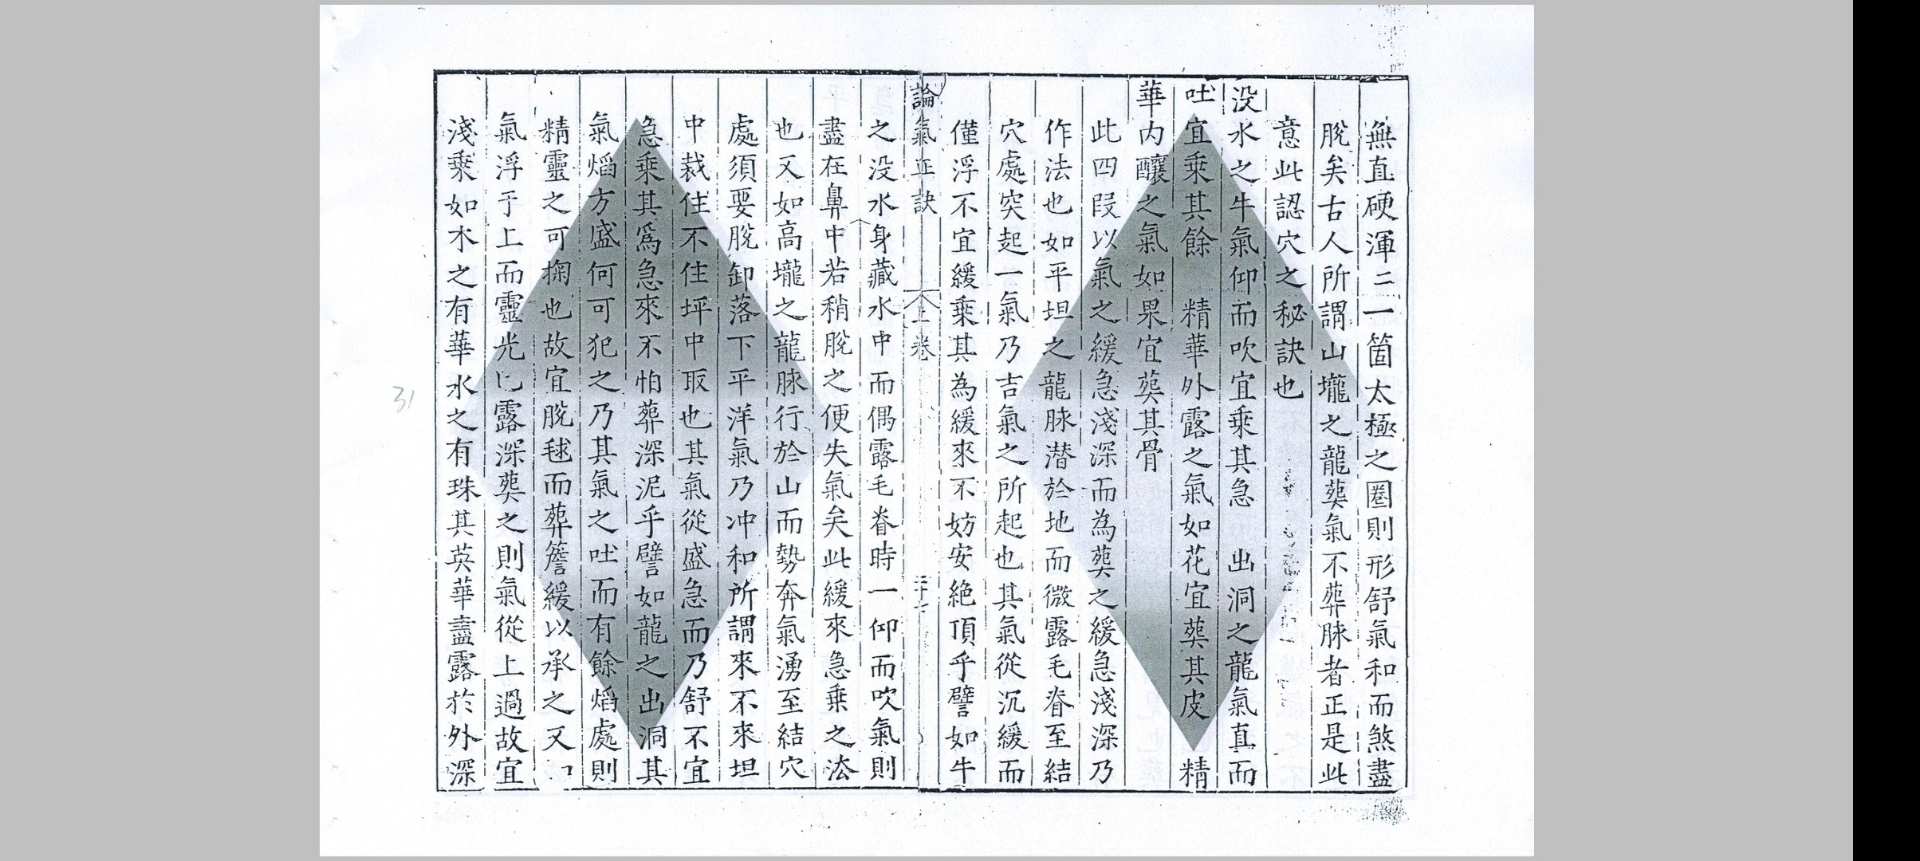 無直硬渾二一箇太極之圈則形舒氣和而煞盡
脫矣古人所謂山壠之龍葬氣不葬脉者正是此
意此認穴之秘訣也
没水之牛氣仰而吹宜乘其急　出洞之龍氣直而
吐宜乘其餘　精華外露之氣如花宜葬其皮　精
華内釀之氣如果宜葬其骨
此四叚以氣之緩急淺深而為葬之緩急淺深乃
作法也如平坦之龍脉潜於地而微露毛脊至結
穴處突起一氣乃吉氣之所起也其氣從沉緩而
僅浮不宜緩乗其為緩來不妨安絶頂乎譬如牛
論氣正訣　上卷
之没水身藏水中而偶露毛脊時一仰而吹氣則
盡在鼻中若稍脫之便失氣矣此緩來急乗之法
也又如高壠之龍脉行於山而勢奔氣湧至結穴
處須要脫卸落下平洋氣乃冲和所謂來不來坦
中裁住不住坪中取也其氣從盛急而乃舒不宜
急乗其爲急來不怕葬深泥乎譬如龍之出洞其
氣熖方盛何可犯之乃其氣之吐而有餘熖處則
精靈之可掬也故宜脫毬而葬簷緩以承之又
氣浮于上而靈光已露深葬之則氣從上過故宜
淺乘如木之有華水之有珠其英華盡露於外深
31